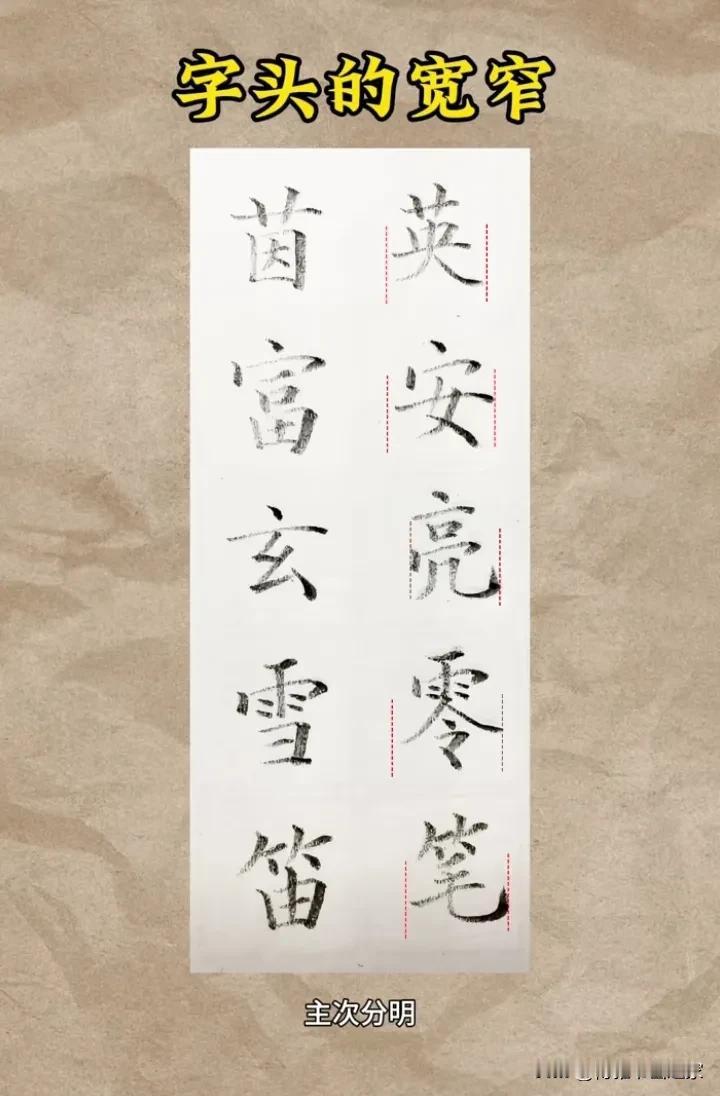 字头的宽窄
茵 英
富 安
玄 亮
雪 零
笛 笔
主次分明